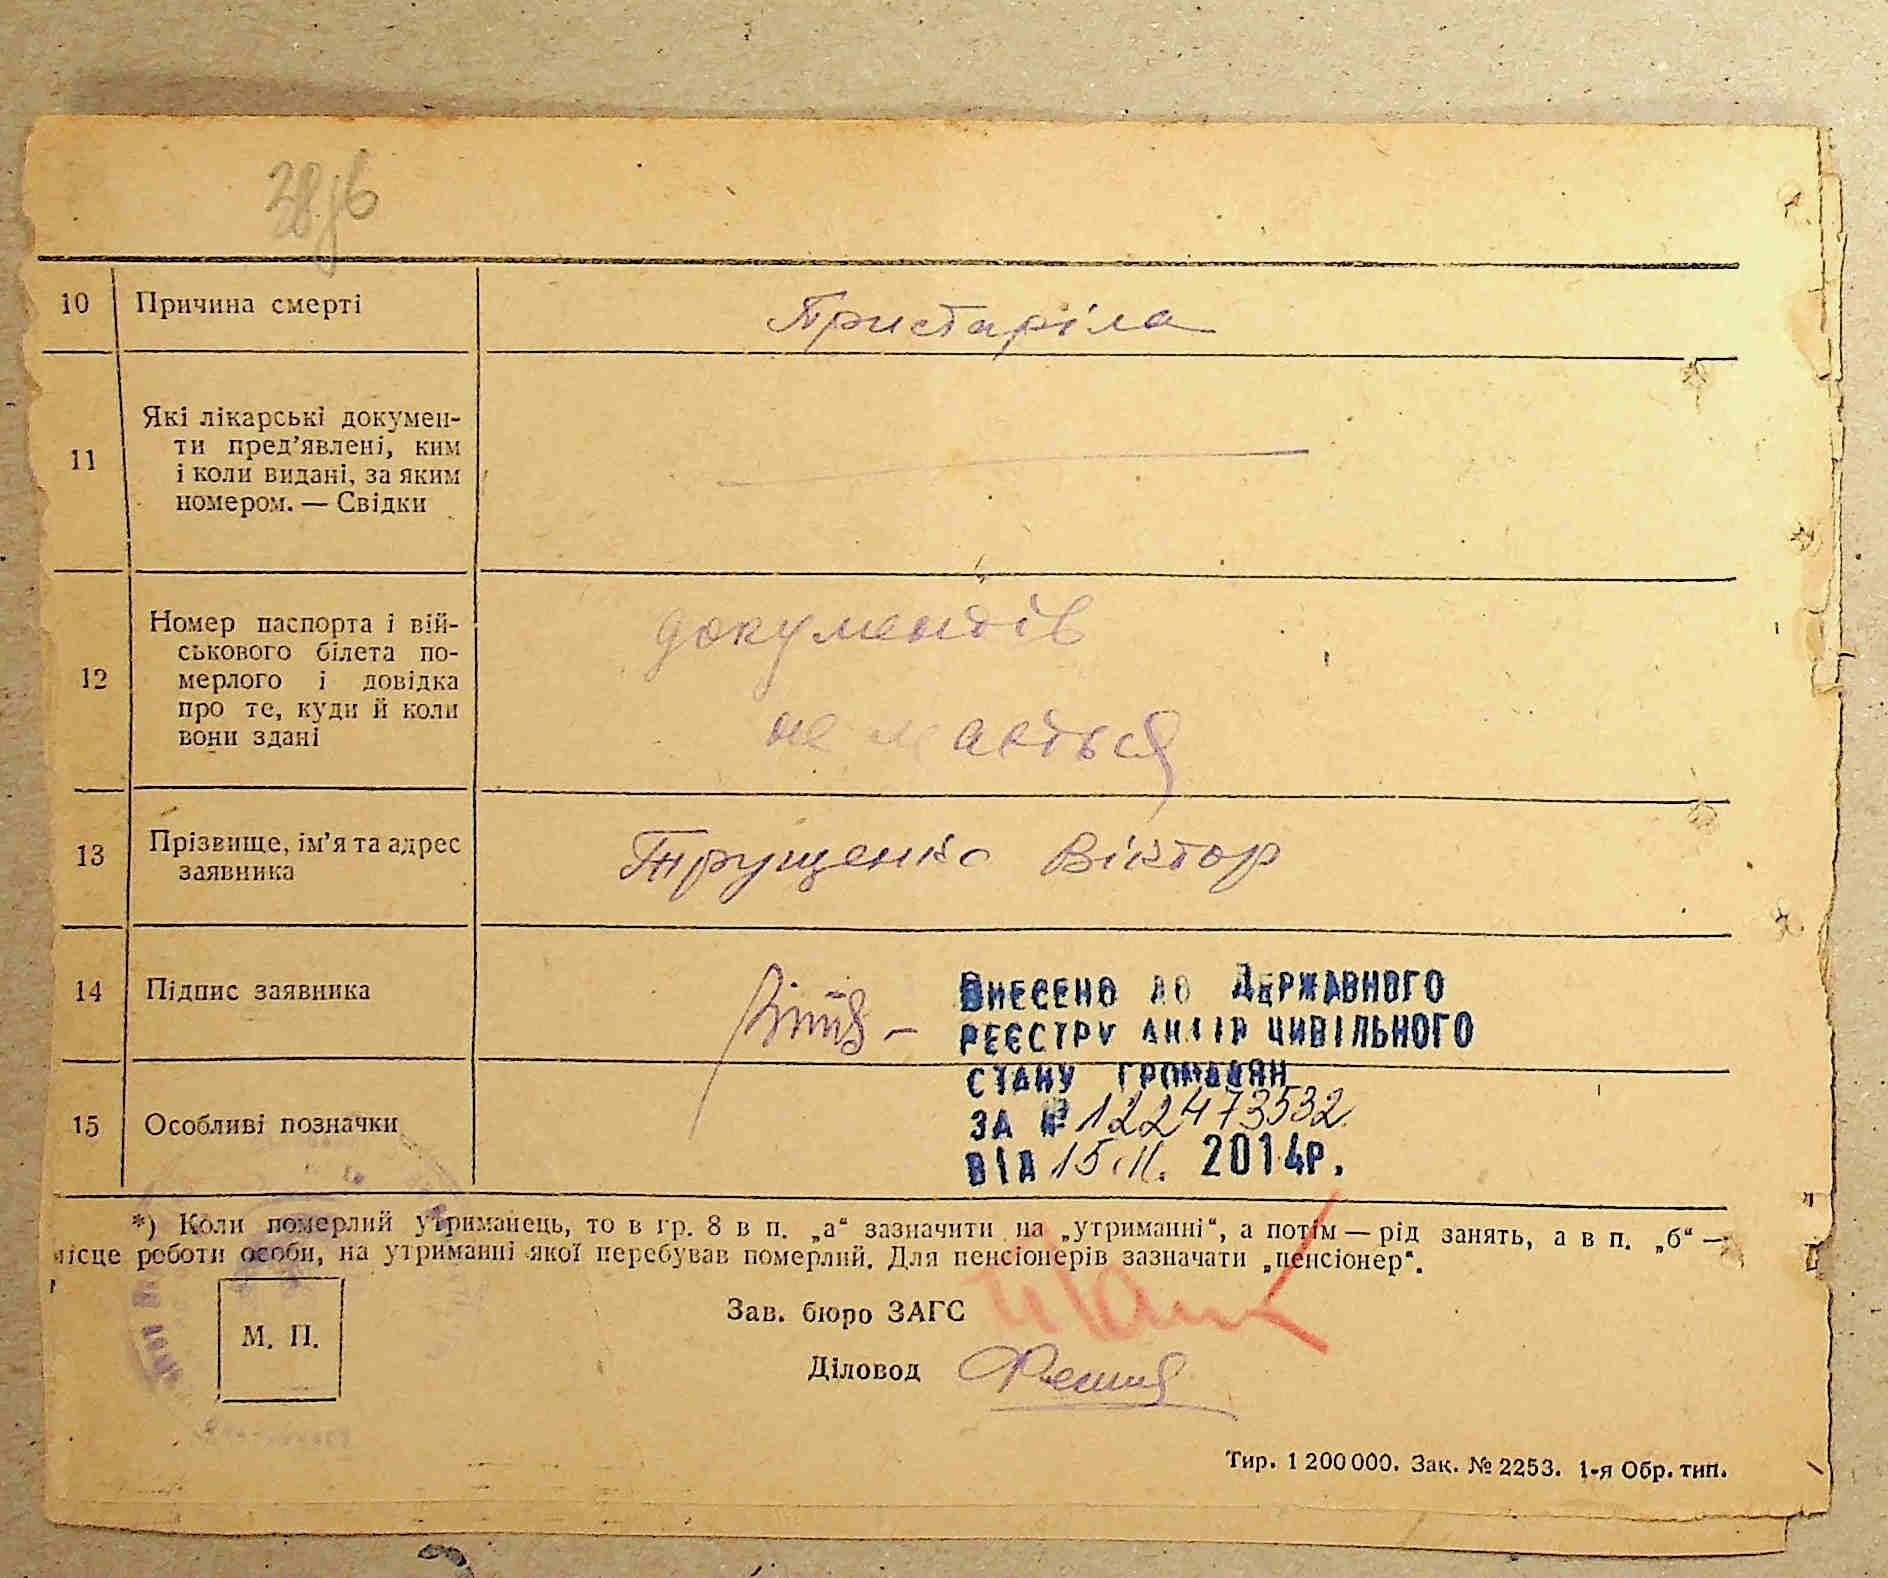 10 Причина смерті Пристаріла
11 Які лікарські докумен-
ти пред’явлені, ким
і коли видані, за яким
номером. — Свідки
12 Номер паспорта і вій-
ськового білета по-
мерлого і довідка
про те, куди й коли
вони здані
документів
не мається
13 Прізвище, ім’я та адрес
заявника
Трущенко Віктор
14 Підпис заявника
Внесено до Державного
реєстру актів цивільного
стану громадян
за № 122473532
від 15.11. 2014р.
15 Особливі позначки
*) Коли померлий утриманець, то в гр. 8 в п. „а“ зазначити на „утриманні“, а потім — рід занять, а в п. „б“ —
місце роботи особи, на утриманні якої перебував померлий. Для пенсіонерів зазначати „пенсіонер“.
М. П.
Зав. бюро ЗАГС
Діловод
Тир. 1 200 000. Зак. № 2253. 1-я Обр. тип.